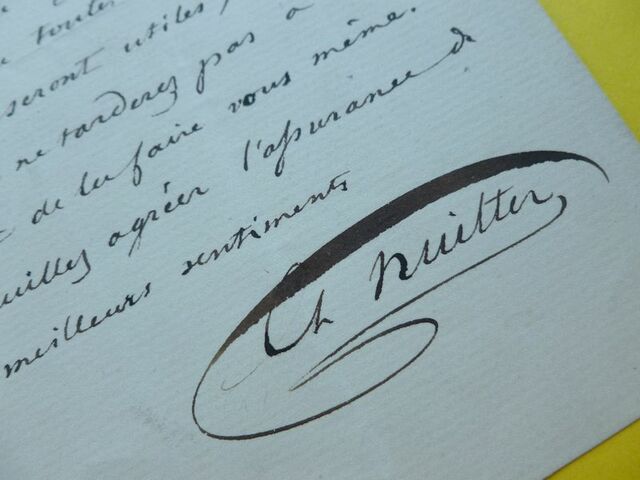 toutes
seront utiles,
ne tarderez pas à
de les faire vous même.
uillez agréer l'assurance de
meilleurs sentiments
Ch Nuitter